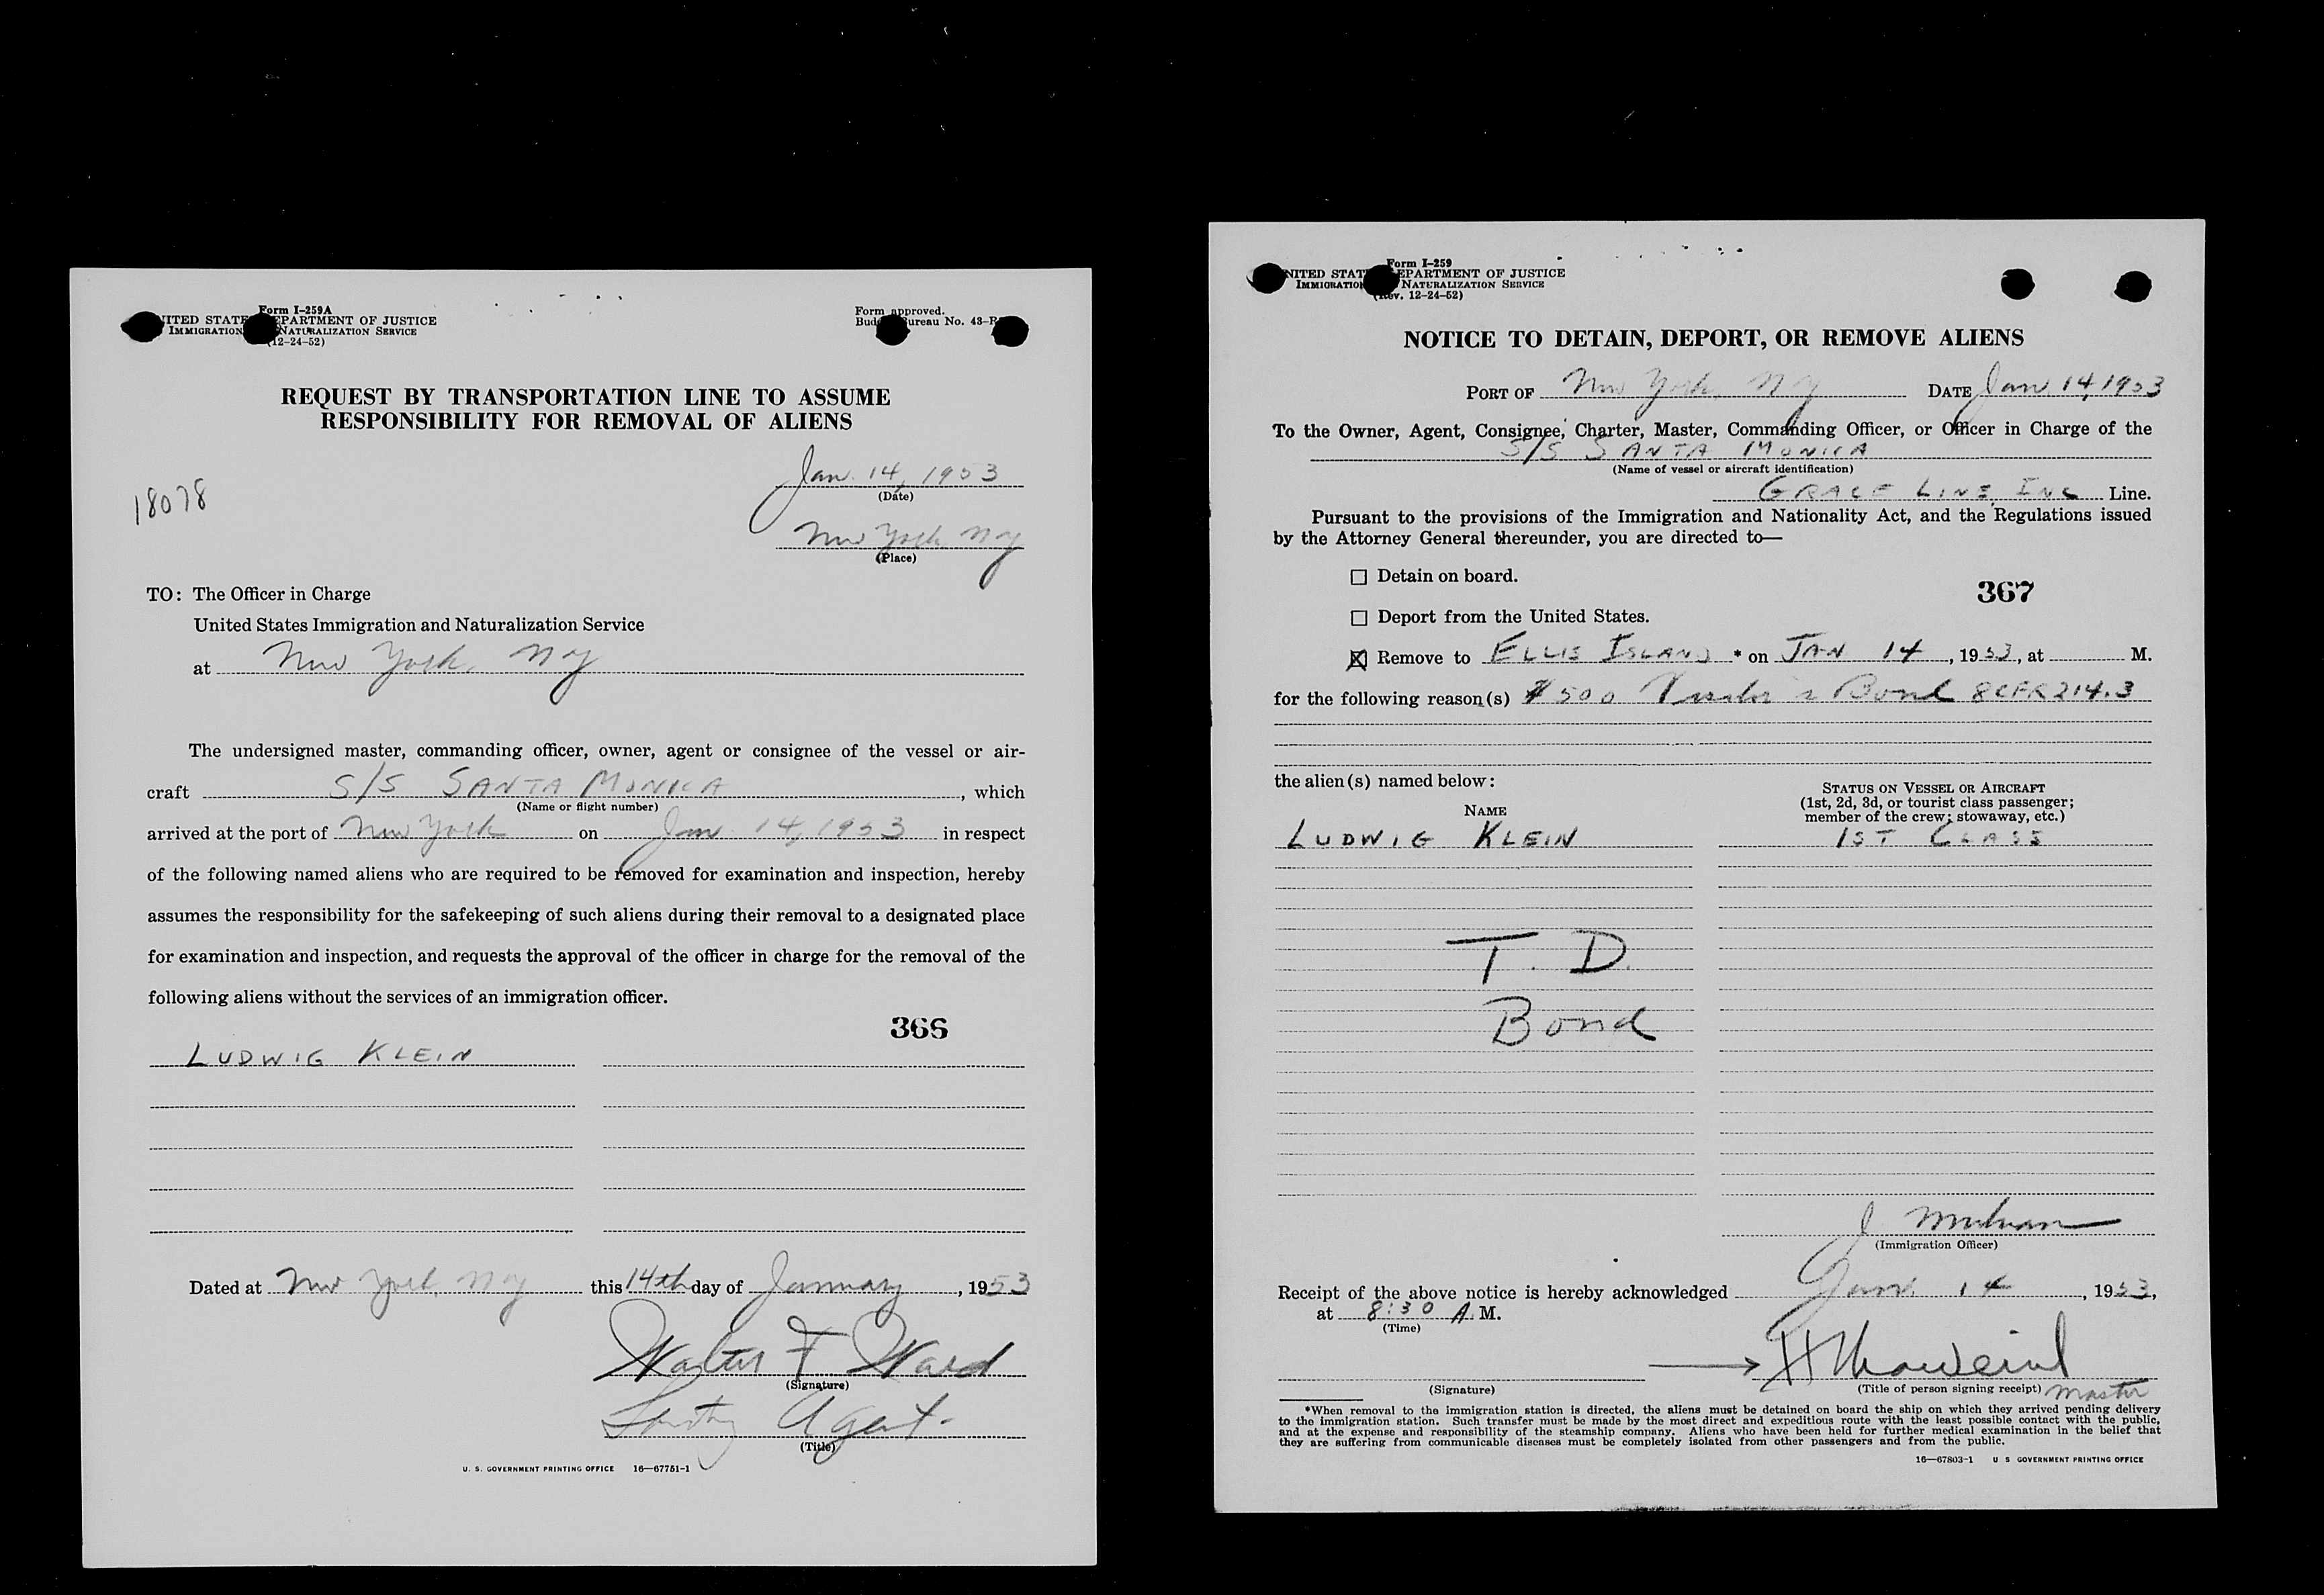 Form I-259A
UNITED STATES DEPARTMENT OF JUSTICE
IMMIGRATION NATURALIZATION SERVICE
(12-24-52)
Form approved.
Budget Bureau No. 43-R
REQUEST BY TRANSPORTATION LINE TO ASSUME
RESPONSIBILITY FOR REMOVAL OF ALIENS
Jan. 14, 1953
(Date)
18078
New York NY
(Place)
TO: The Officer in Charge
United States Immigration and Naturalization Service
at New York, NY
The undersigned master, commanding officer, owner, agent or consignee of the vessel or air-
craft S/S SANTA MONICA, which
(Name or flight number)
arrived at the port of New York on Jan 14, 1953 in respect
of the following named aliens who are required to be removed for examination and inspection, hereby
assumes the responsibility for the safekeeping of such aliens during their removal to a designated place
for examination and inspection, and requests the approval of the officer in charge for the removal of the
following aliens without the services of an immigration officer.
366
LUDWIG KLEIN
Dated at New York, NY this 14th day of January, 1953
Walter F Ward
(Signature)
Agent
(Title)
U. S. GOVERNMENT PRINTING OFFICE 16—67751-1
Form I-259
UNITED STATES DEPARTMENT OF JUSTICE
IMMIGRATION NATURALIZATION SERVICE
(Rev. 12-24-52)
NOTICE TO DETAIN, DEPORT, OR REMOVE ALIENS
PORT OF New York, NY DATE Jan. 14, 1953
To the Owner, Agent, Consignee, Charter, Master, Commanding Officer, or Officer in Charge of the
S/S SANTA MONICA
(Name of vessel or aircraft identification)
GRACE LINE, INC Line.
Pursuant to the provisions of the Immigration and Nationality Act, and the Regulations issued
by the Attorney General thereunder, you are directed to—
Detain on board.
367
Deport from the United States.
Remove to ELLIS ISLAND * on JAN 14, 1953, at M.
for the following reason(s) $500 Bond 8CFR214.3
the alien(s) named below:
STATUS ON VESSEL OR AIRCRAFT
(1st, 2d, 3d, or tourist class passenger;
member of the crew; stowaway, etc.)
NAME
LUDWIG KLEIN 1ST CLASS
T. D.
Bond
J.
(Immigration Officer)
Receipt of the above notice is hereby acknowledged Jan. 14, 1953,
at 8:30 A. M.
(Time)
(Signature)
(Title of person signing receipt) Master
*When removal to the immigration station is directed, the aliens must be detained on board the ship on which they arrived pending delivery
to the immigration station. Such transfer must be made by the most direct and expeditious route with the least possible contact with the public,
and at the expense and responsibility of the steamship company. Aliens who have been held for further medical examination in the belief that
they are suffering from communicable diseases must be completely isolated from other passengers and from the public.
16—67803-1 U S GOVERNMENT PRINTING OFFICE